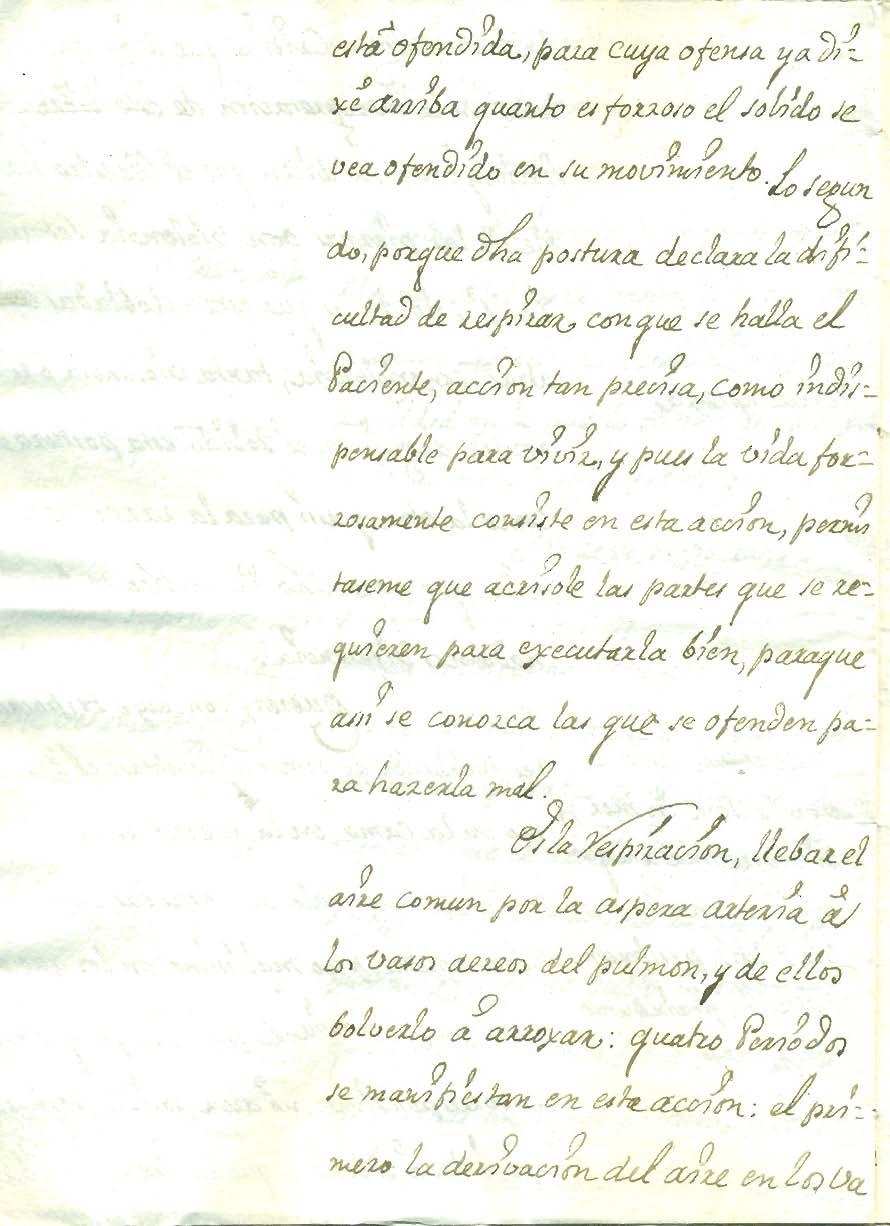 está ofendida, para cuya ofensa ya di=
xê arriba quanto es forzoso el solido se
vea ofendido en su movimiento. Lo segun
do, porque dha postura declara la difi=
cultad de respirar, con que se halla el
Paciente, accion tan precisa, como indis=
pensable para vivir, y pues la vida for=
zosamente consiste en esta accion, permi
taseme que acrisole las partes que se re=
quieren para executarla bien, paraque
asi se conozca las que se ofenden pa=
ra hazerla mal.
Es la respiracion, llebar el
aire comun por la aspera arteria â
los vasos aereos del pulmon, y de ellos
bolverlo â arroxar: quatro Periodos
se manifiestan en esta accion: el pri=
mero la derivacion del aire en los va